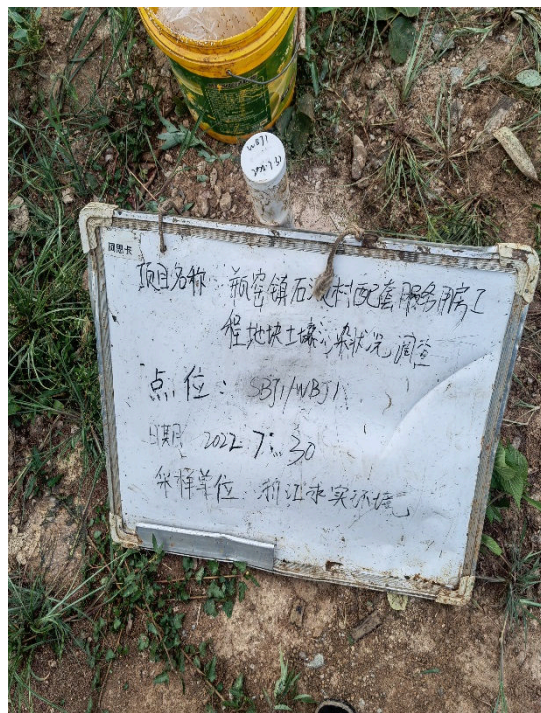 WBJ1
得思卡
项目名称：瓶窑镇石濑村配套服务用房工
程地块土壤污染状况调查
点位：SBJ1/WBJ1
日期 2022.7.30
采样单位 浙江求实环境